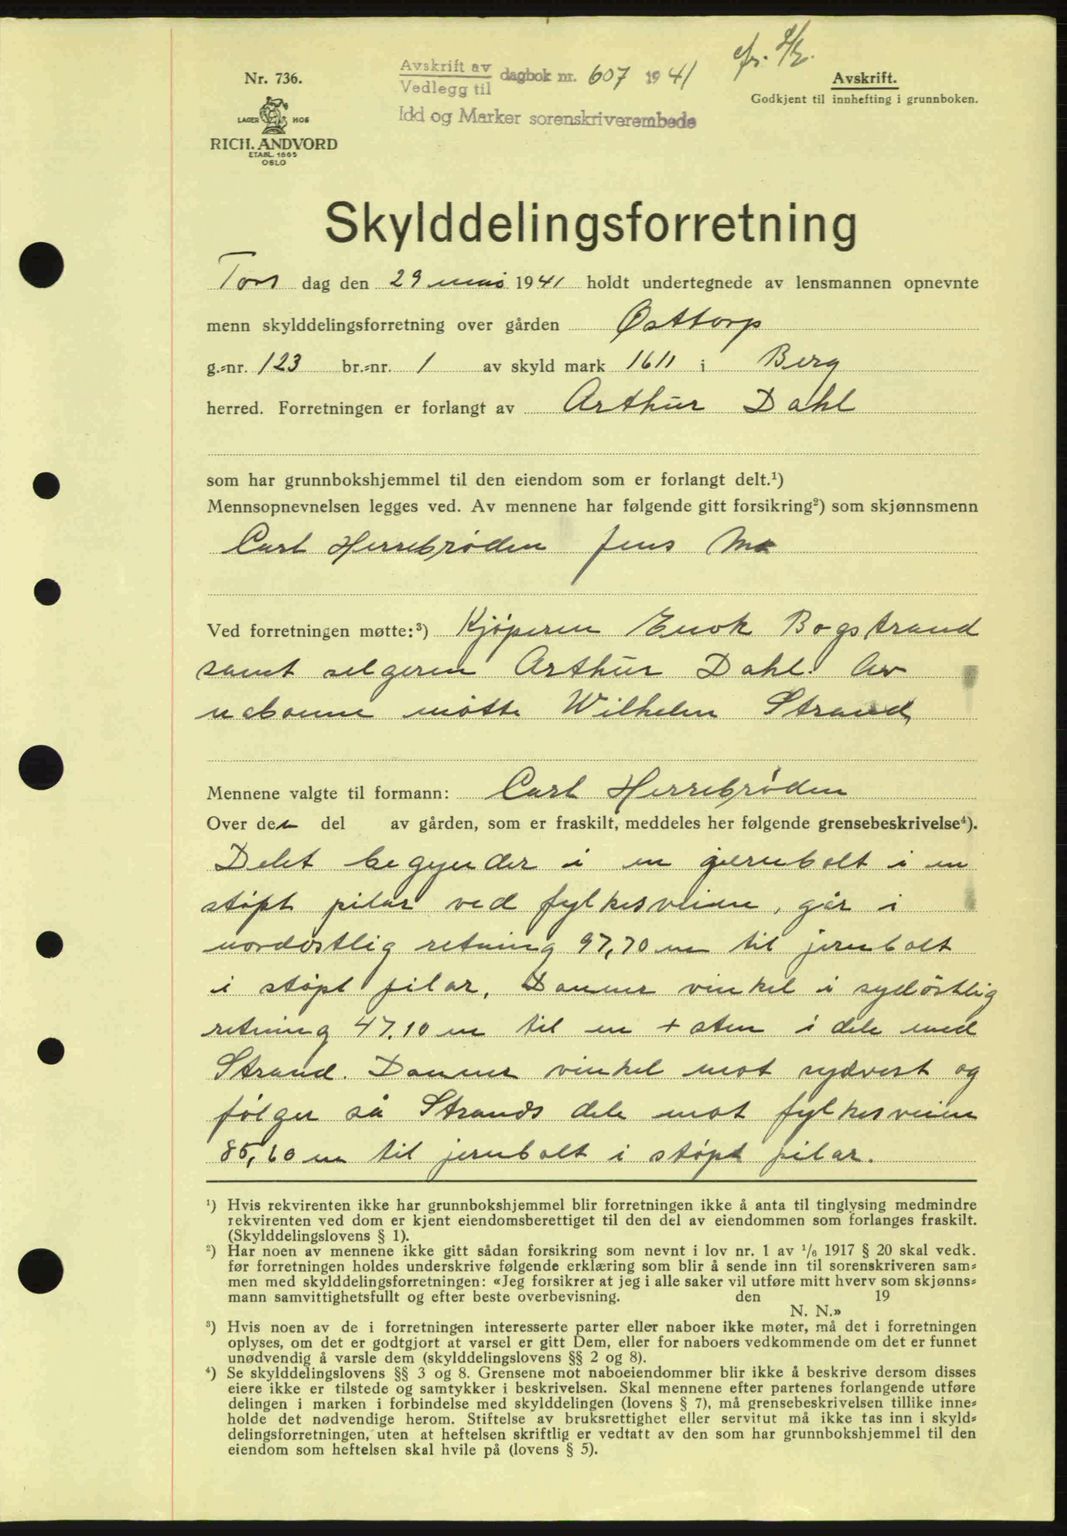 Nr. 736.
LAGER HOS
RICH. ANDVORD
ETABL. 1865
OSLO
Avskrift av
Vedlegg til
dagbok nr. 607 1941
Idd og Marker sorenskriverembede
Avskrift.
Godkjent til innhefting i grunnboken.
Skylddelingsforretning
Tors dag den 29 mai 1941 holdt undertegnede av lensmannen opnevnte
menn skylddelingsforretning over gården Østtorp
g.-nr. 123 br.-nr. 1 av skyld mark 1611 i Berg
herred. Forretningen er forlangt av Arthur Dahl
som har grunnbokshjemmel til den eiendom som er forlangt delt.¹)
Mennsopnevnelsen legges ved. Av mennene har følgende gitt forsikring²) som skjønnsmenn
Carl Herrebrøden Jens Mo
Ved forretningen møtte:³) Kjøperen Enok Bogstrand
samt selgeren Arthur Dahl. Av
naboene møtte Wilhelm Strand
Mennene valgte til formann: Carl Herrebrøden
Over den del av gården, som er fraskilt, meddeles her følgende grensebeskrivelse⁴).
Delet begynder i en jernbolt i en
støpt pilar ved fylkesveien, går i
nordøstlig retning 97,70 m til jernbolt
i støpt pilar. Danner vinkel i sydöstlig
retning 47,10 m til en + sten i dele med
Strand. Danner vinkel mot sydvest og
følger så Strands dele mot fylkesveien
85,60 m til jernbolt i støpt pilar.
¹) Hvis rekvirenten ikke har grunnbokshjemmel blir forretningen ikke å anta til tinglysing medmindre
rekvirenten ved dom er kjent eiendomsberettiget til den del av eiendommen som forlanges fraskilt.
(Skylddelingslovens § 1).
²) Har noen av mennene ikke gitt sådan forsikring som nevnt i lov nr. 1 av ¹/₆ 1917 § 20 skal vedk.
før forretningen holdes underskrive følgende erklæring som blir å sende inn til sorenskriveren sam-
men med skylddelingsforretningen: «Jeg forsikrer at jeg i alle saker vil utføre mitt hverv som skjønns-
mann samvittighetsfullt og efter beste overbevisning. den 19
N. N.»
³) Hvis noen av de i forretningen interesserte parter eller naboer ikke møter, må det i forretningen
oplyses, om det er godtgjort at varsel er gitt Dem, eller for naboers vedkommende om det er funnet
unødvendig å varsle dem (skylddelingslovens §§ 2 og 8).
⁴) Se skylddelingslovens §§ 3 og 8. Grensene mot naboeiendommer blir ikke å beskrive dersom disses
eiere ikke er tilstede og samtykker i beskrivelsen. Skal mennene efter partenes forlangende utføre
delingen i marken i forbindelse med skylddelingen (lovens § 7), må grensebeskrivelsen tillike inne-
holde det nødvendige herom. Stiftelse av bruksrettighet eller servitut må ikke tas inn i skyld-
delingsforretningen, uten at heftelsen skriftlig er vedtatt av den som har grunnbokshjemmel til den
eiendom som heftelsen skal hvile på (lovens § 5).